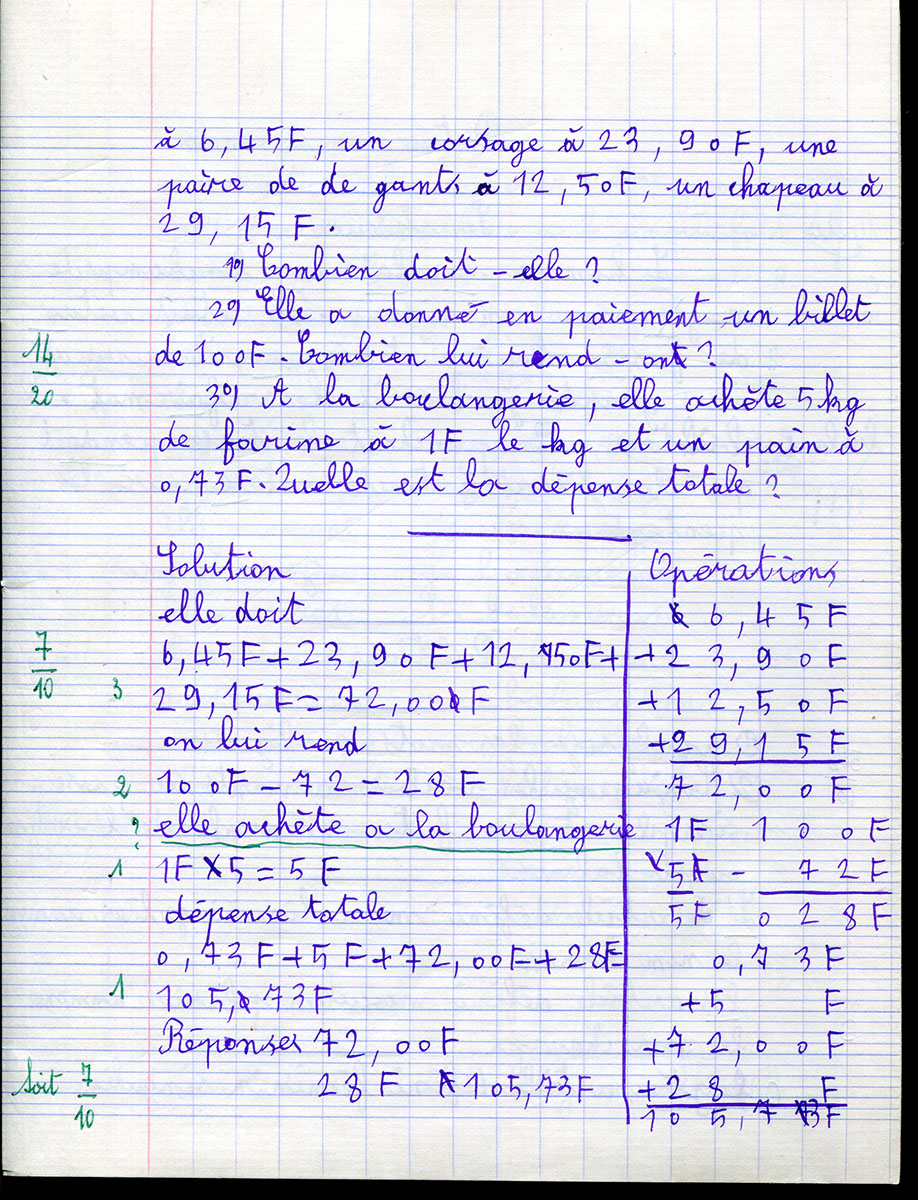 à 6,45F, un corsage à 23,90F, une
paire de de gants à 12,50F, un chapeau à
29,15F.
1°) Combien doit-elle ?
2°) Elle a donné en paiement un billet
de 100F. Combien lui rend-ont ?
3°) A la boulangerie, elle achète 5kg
de farine à 1F le kg et un pain à
0,73F. Quelle est la dépense totale ?
14
20
Solution
elle doit
6,45F+23,90F+12,50F+
29,15F=72,00F
on lui rend
100F-72=28F
elle achète a la boulangerie
1F×5=5F
dépense totale
0,73F+5F+72,00F+28F
105,73F
Réponses 72,00F
28F 105,73F
7
10
3
2
?
1
1
Soit 7
10
Opérations
6,45F
+23,90F
+12,50F
+29,15F
72,00F
1F 100F
×5 - 72F
5F 028F
0,73F
+5 F
+72,00F
+28 F
105,73F